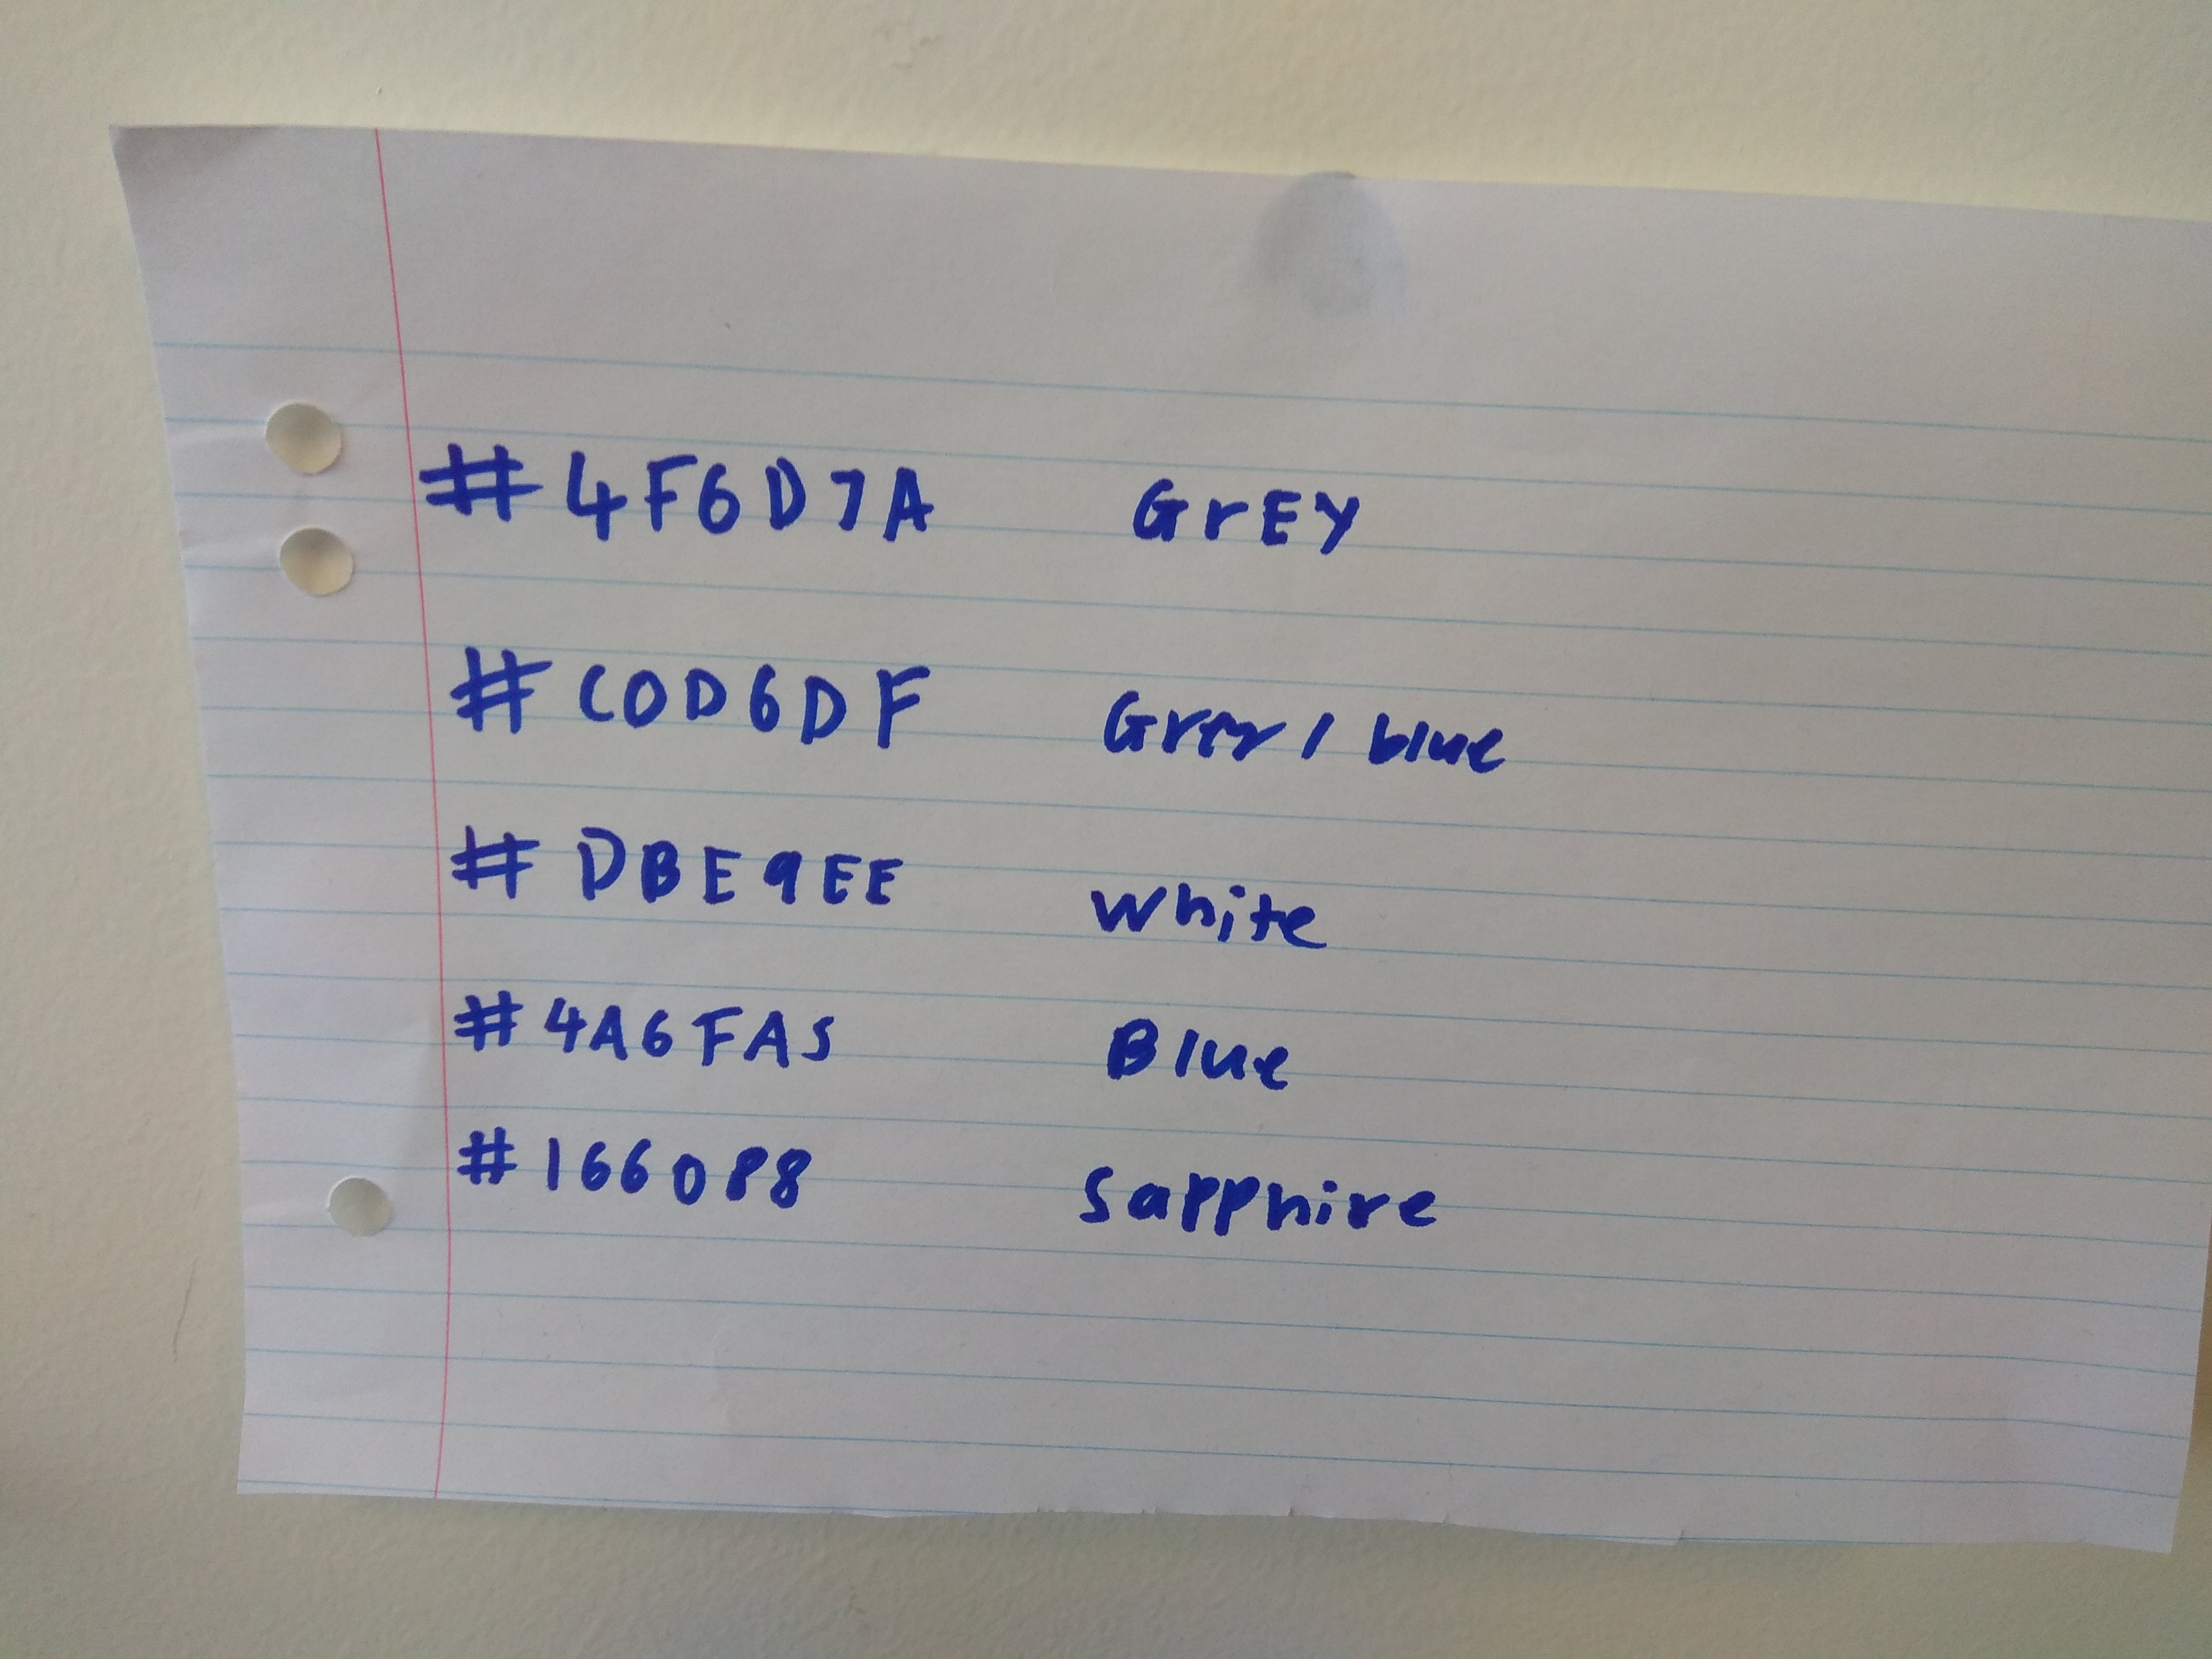 #4F6D7A GrEY
#C0D6DF Grey / blue
#DBE9EE white
#4A6FA5 Blue
#166088 Sapphire